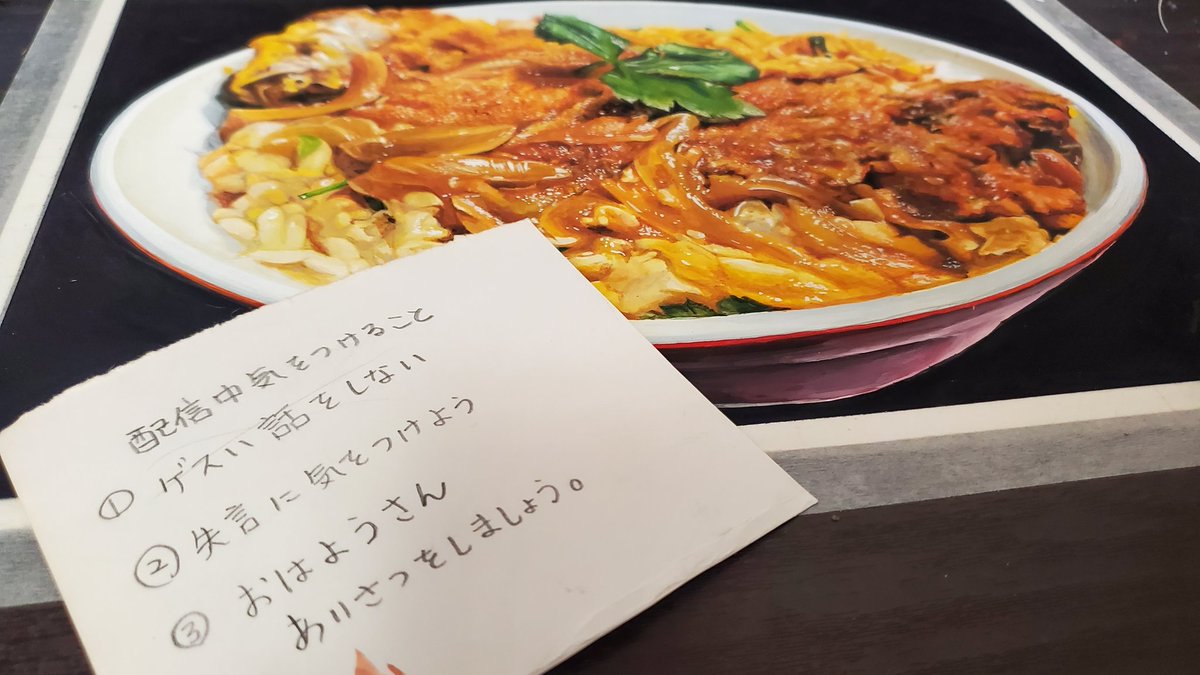 配信中気をつけること
① ゲスい話をしない
② 失言に気をつけよう
③ おはようさん
あいさつをしましょう。